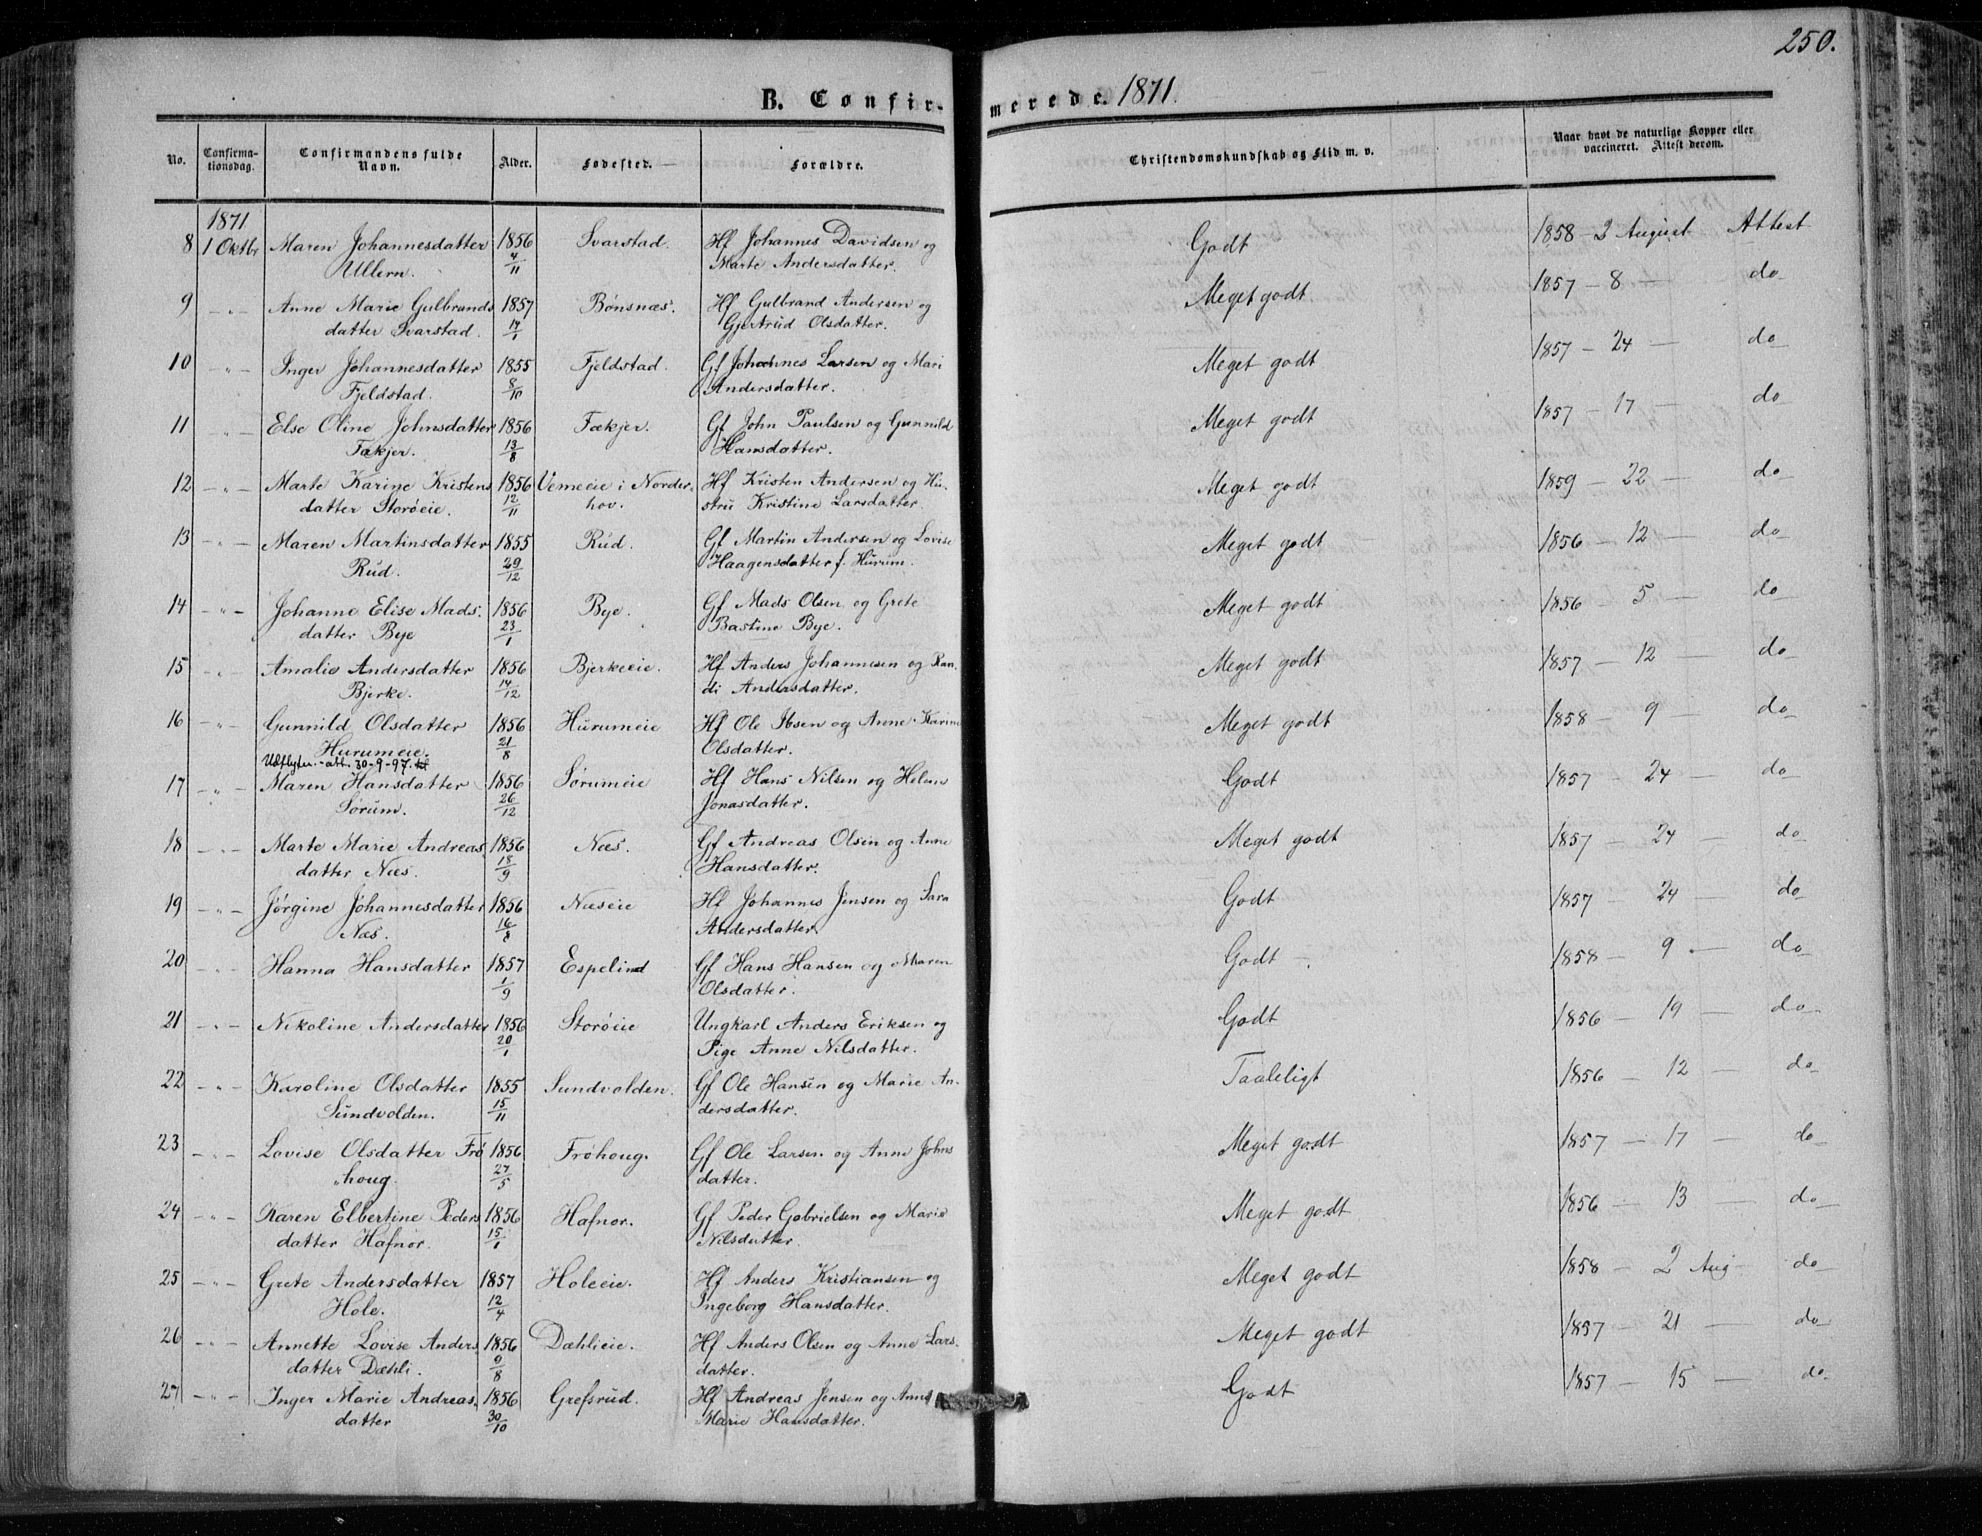 250.
B. Confirmerede. 1871.
No. Confirma-tionsdag. Confirmandens fulde Navn. Alder. Fødested. Forældre. Christendomskundskab og Flid m. v. Naar havt de naturlige Kopper eller vaccineret. Attest derom.
1871
8 1 Oktbr Maren Johannesdatter 1856 Svarstad. Hf Johannes Davidsen og Godt 1858 - 2 August Attest
Ullern. 4/11 Marte Andersdatter.
9 - " - Anne Marie Gulbrands 1857 Bønsnæs. Hf Gulbrand Andersen og Meget godt. 1857 - 8 - do
datter Svarstad. Gjertrud Olsdatter.
10 - " - Inger Johannesdatter 1855 Fjeldstad. Gf Johannes Larsen og Mari Meget godt 1857 - 24 - do
Fjeldstad. 8/10 Andersdatter.
11 - " - Else Oline Johnsdatter 1856 Fækjer. Gf John Paulsen og Gunnild Meget godt 1857 - 17 - do
Fækjer. 13/8 Hansdatter.
12 - " - Marte Karine Kristens 1856 Vemeeie i Norder Hf Kristen Andersen og Hu- Meget godt 1859 - 22 - do
datter Storøeie. 12/11 hov. stru Kristine Larsdatter.
13 - " - Maren Martinsdatter 1855 Rud. Gf Martin Andersen og Lovise Meget godt 1856 - 12 - do
Rud. 29/12 Haagensdatter f. Hurum.
14 - " - Johanne Elise Mads- 1856 Bye. Gf Mads Olsen og Grete Meget godt 1856 - 5 - do
datter Bye 23/1 Bastine Bye.
15 - " - Amalie Andersdatter 1856 Bjerkeeie. Hf Anders Johannesen og Ran- Meget godt 1857 - 12 - do
Bjerke. 14/12 di Andersdatter.
16 - " - Gunnild Olsdatter 1856 Hurumeie Hf Ole Ibsen og Anne Karine Meget godt 1858 - 9 - do
Hurumeie. 21/8 Olsdatter.
Udflytn.-att. 30-9-97.
17 - " - Maren Hansdatter 1856 Sørumeie Hf Hans Nilsen og Helene Godt 1857 - 24 - do
Sørum. 26/12 Jonasdatter.
18 - " - Marte Marie Andreas 1856 Næs. Gf Andreas Olsen og Anne Meget godt 1857 - 24 - do
datter Næs. 18/9 Hansdatter.
19 - " - Jørgine Johannesdatter 1856 Næseie Hf Johannes Jensen og Sara Godt 1857 - 24 - do
Næs. 16/8 Andersdatter.
20 - " - Hanna Hansdatter 1857 Espelind Gf Hans Hansen og Maren Godt - 1858 - 9 - do
1/9 Olsdatter.
21 - " - Nikoline Andersdatter 1856 Storøeie Ungkarl Anders Eriksen og Godt 1856 - 19 - do
20/1 Pige Anne Nilsdatter.
22 - " - Karoline Olsdatter 1855 Sundvolden. Gf Ole Hansen og Marie An- Taaleligt 1856 - 12 - do
Sundvolden. 15/11 dersdatter.
23 - " - Lovise Olsdatter Frø 1856 Frøhoug. Gf Ole Larsen og Anne Johns Meget godt 1857 - 17 - do
houg. 27/5 datter.
24 - " - Karen Elbertine Peders 1856 Hafnor. Gf Peder Gabrielsen og Marie Meget godt 1856 - 13 - do
datter Hafnor. 15/1 Nilsdatter.
25 - " - Grete Andersdatter 1857 Holeeie. Hf Anders Kristiansen og Meget godt 1858 - 2 Aug - do
Hole. 12/4 Ingeborg Hansdatter.
26 - " - Annette Lovise Anders 1856 Dæhlieie. Hf Anders Olsen og Anne Lars- Meget godt 1857 - 21 - do
datter Dæhli. 9/8 datter.
27 - " - Inger Marie Andreas 1856 Grefsrud. Hf Andreas Jensen og Anne Godt 1857 - 15 - do
datter 30/10 Marie Hansdatter.